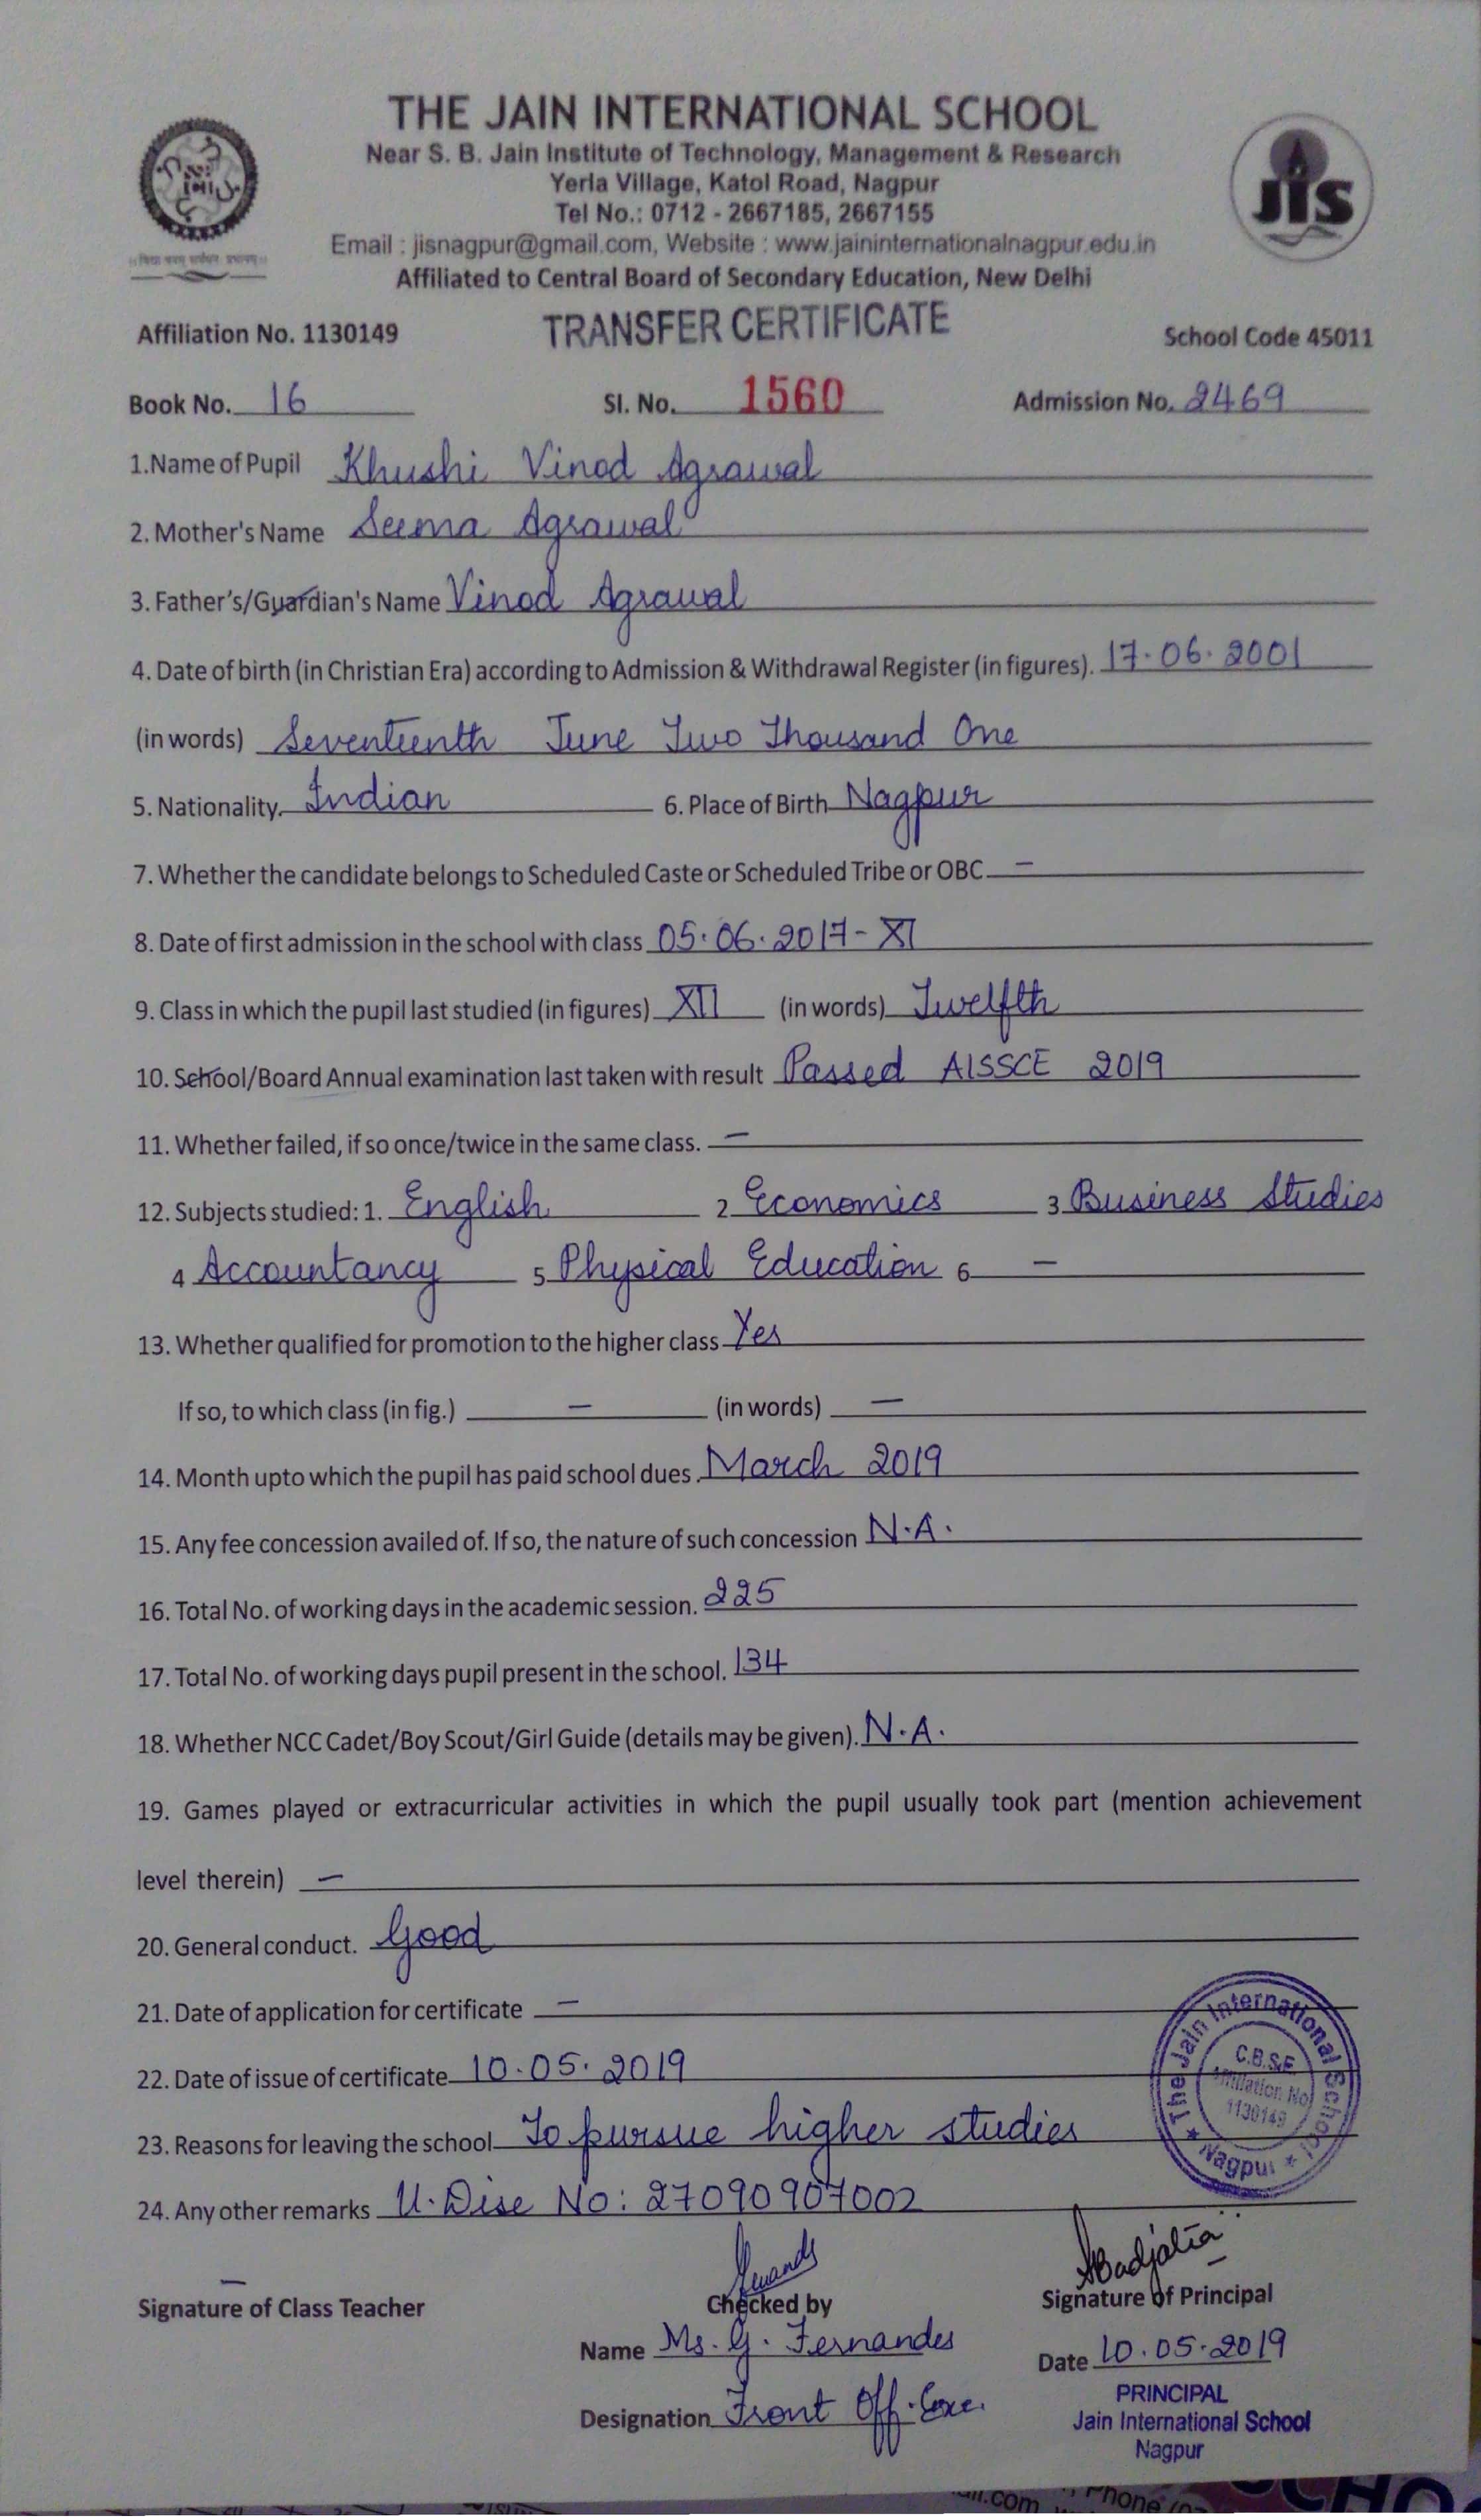 THE JAIN INTERNATIONAL SCHOOL
Near S. B. Jain Institute of Technology, Management & Research
Yerla Village, Katol Road, Nagpur
Tel No.: 0712 - 2667185, 2667155
Email : jisnagpur@gmail.com, Website : www.jaininternationalnagpur.edu.in
Affiliated to Central Board of Secondary Education, New Delhi
JIS
Affiliation No. 1130149 TRANSFER CERTIFICATE School Code 45011
Book No. 16 Sl. No. 1560 Admission No. 2469
1.Name of Pupil Khushi Vinod Agrawal
2. Mother's Name Seema Agrawal
3. Father's/Guardian's Name Vinod Agrawal
4. Date of birth (in Christian Era) according to Admission & Withdrawal Register (in figures). 17.06.2001
(in words) Seventeenth June Two Thousand One
5. Nationality. Indian 6. Place of Birth Nagpur
7. Whether the candidate belongs to Scheduled Caste or Scheduled Tribe or OBC. –
8. Date of first admission in the school with class 05.06.2017 - XI
9. Class in which the pupil last studied (in figures) XII (in words) Twelfth
10. School/Board Annual examination last taken with result Passed AISSCE 2019
11. Whether failed, if so once/twice in the same class. –
12. Subjects studied: 1. English 2 Economics 3 Business Studies
4 Accountancy 5 Physical Education 6 –
13. Whether qualified for promotion to the higher class Yes
If so, to which class (in fig.) – (in words) –
14. Month upto which the pupil has paid school dues. March 2019
15. Any fee concession availed of. If so, the nature of such concession N.A.
16. Total No. of working days in the academic session. 225
17. Total No. of working days pupil present in the school. 134
18. Whether NCC Cadet/Boy Scout/Girl Guide (details may be given). N.A.
19. Games played or extracurricular activities in which the pupil usually took part (mention achievement
level therein) –
20. General conduct. Good
21. Date of application for certificate –
22. Date of issue of certificate 10.05.2019
23. Reasons for leaving the school To pursue higher studies
24. Any other remarks U.Dise No: 27090907002
The Jain International School
C.B.S.E
Affiliation No
1130149
* Nagpur *
–
Signature of Class Teacher Checked by Signature of Principal
Name Ms. G. Fernandes Date 10.05.2019
Designation Front Off. Exe.
PRINCIPAL
Jain International School
Nagpur